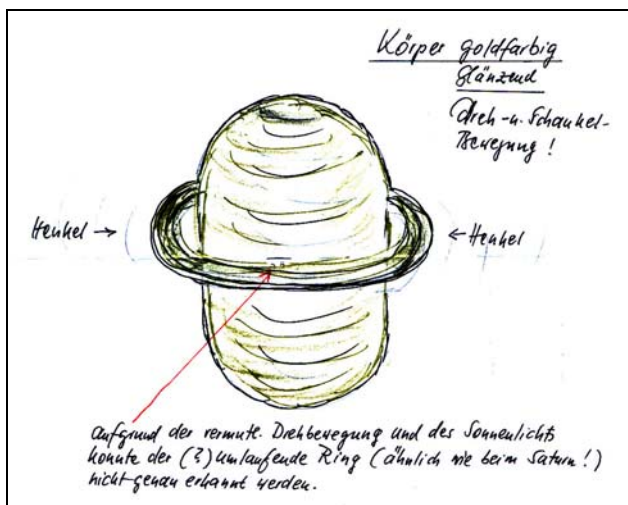 Körper goldfarbig
glänzend
Dreh-u. Schaukel-
Bewegung!
Henkel →
← Henkel
Aufgrund der vermute. Drehbewegung und des Sonnenlichts
konnte der (?) umlaufende Ring (ähnlich wie beim Saturn!)
nicht genau erkannt werden.